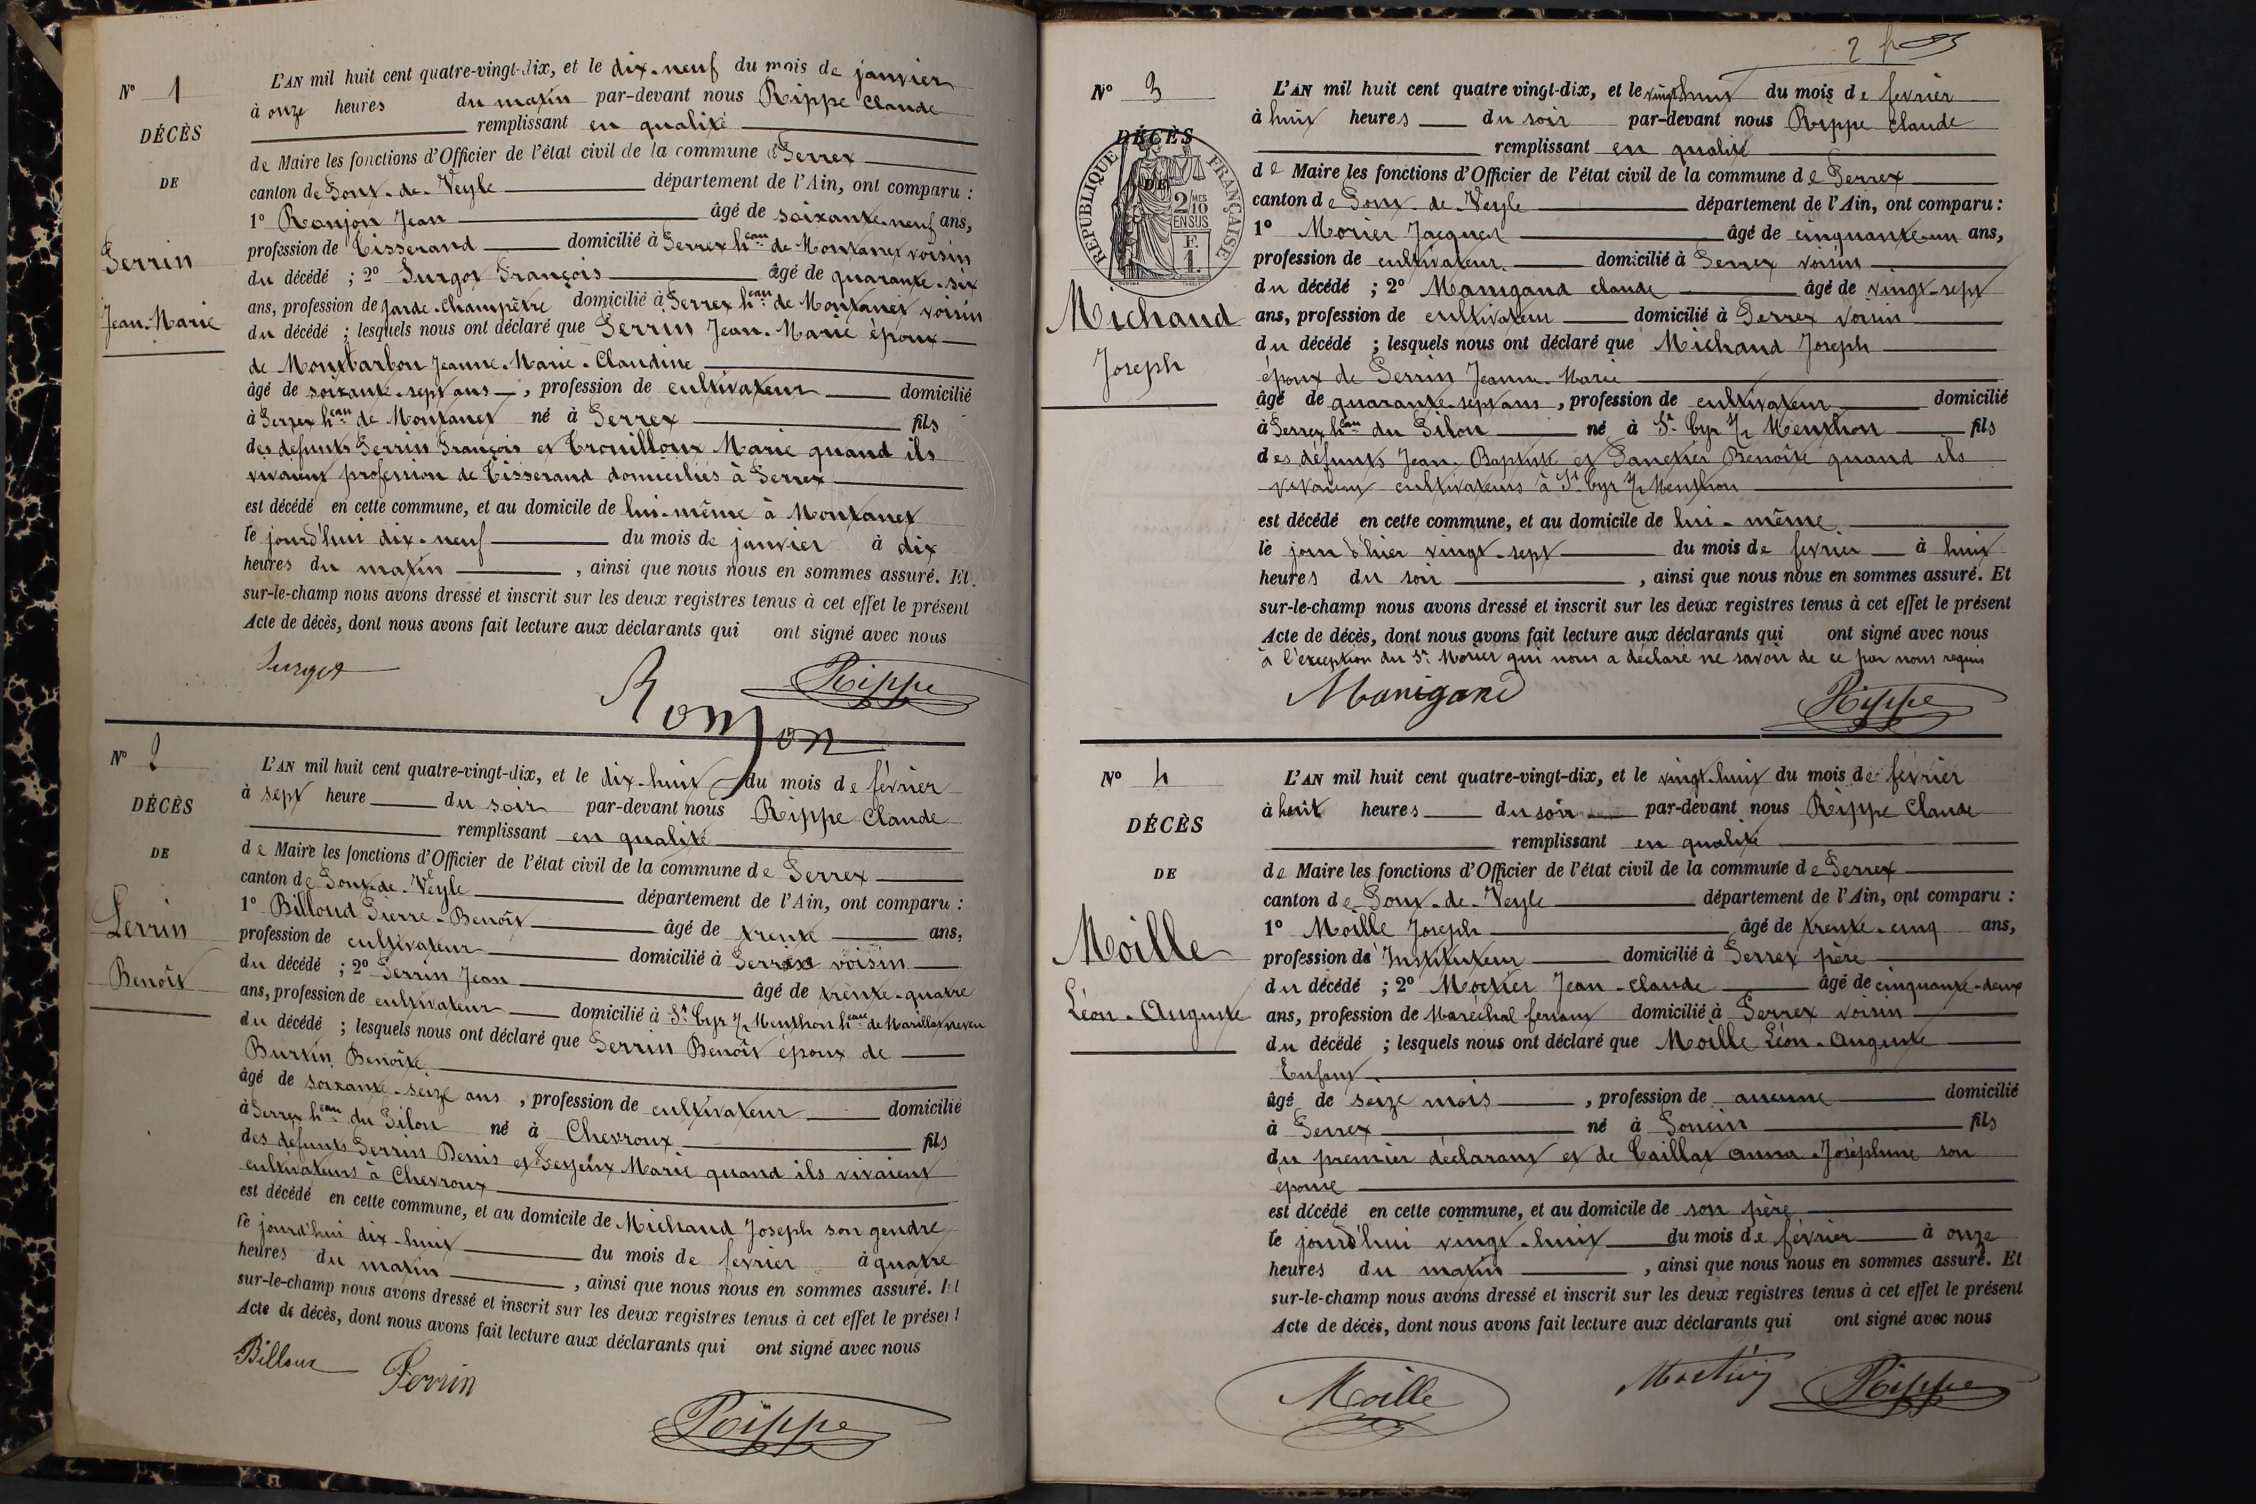 N° 1
DÉCÈS
DE
Perrin
Jean-Marie
L'AN mil huit cent quatre-vingt-dix, et le dix-neuf du mois de janvier
à onze heures du matin par-devant nous Rippe Claude
remplissant en qualité
de Maire les fonctions d'Officier de l'état civil de la commune de Perrex
canton de Pont-de-Veyle département de l'Ain, ont comparu :
1° Ronjon Jean âgé de soixante-neuf ans,
profession de Tisserand domicilié à Perrex heau de Montanet voisin
du décédé ; 2° Surget François âgé de quarante-six
ans, profession de garde-champêtre domicilié à Perrex heau de Montanet voisin
du décédé ; lesquels nous ont déclaré que Perrin Jean-Marie époux
de Montbarbon Jeanne-Marie-Claudine
âgé de soixante-sept ans, profession de cultivateur domicilié
à Perrex heau de Montanet né à Perrex fils
des défunts Perrin François et Trouilloux Marie quand ils
vivaient profession de Tisserand domiciliés à Perrex
est décédé en cette commune, et au domicile de lui-même à Montanet
le jourd'hui dix-neuf du mois de janvier à dix
heures du matin, ainsi que nous nous en sommes assuré. Et
sur-le-champ nous avons dressé et inscrit sur les deux registres tenus à cet effet le présent
Acte de décès, dont nous avons fait lecture aux déclarants qui ont signé avec nous
Surget Ronjon Rippe
N° 2
DÉCÈS
DE
Perrin
Benoît
L'AN mil huit cent quatre-vingt-dix, et le dix-huit du mois de février
à sept heure du soir par-devant nous Rippe Claude
remplissant en qualité
de Maire les fonctions d'Officier de l'état civil de la commune de Perrex
canton de Pont-de-Veyle département de l'Ain, ont comparu :
1° Billoud Pierre-Benoît âgé de trente ans,
profession de cultivateur domicilié à Perrex voisin
du décédé ; 2° Perrin Jean âgé de trente-quatre
ans, profession de cultivateur domicilié à St Cyr s/ Menthon heau de Marillat neveu
du décédé ; lesquels nous ont déclaré que Perrin Benoît époux de
Burtin Benoîte
âgé de soixante-seize ans, profession de cultivateur domicilié
à Perrex heau du Pilon né à Chevroux fils
des défunts Perrin Denis et Peyeux Marie quand ils vivaient
cultivateurs à Chevroux
est décédé en cette commune, et au domicile de Michaud Joseph son gendre
le jourd'hui dix-huit du mois de fevrier à quatre
heures du matin, ainsi que nous nous en sommes assuré. Et
sur-le-champ nous avons dressé et inscrit sur les deux registres tenus à cet effet le présent
Acte de décès, dont nous avons fait lecture aux déclarants qui ont signé avec nous
Billoud Perrin
Rippe
N° 3
DÉCÈS
DE
RÉPUBLIQUE FRANÇAISE
2/10 MES
EN SUS
F.
1.
Michaud
Joseph
L'AN mil huit cent quatre vingt-dix, et le vingt huit du mois de fevrier
à huit heures du soir par-devant nous Rippe Claude
remplissant en qualité
de Maire les fonctions d'Officier de l'état civil de la commune de Perrex
canton de Pont-de-Veyle département de l'Ain, ont comparu :
1° Morier Jacques âgé de cinquante-un ans,
profession de cultivateur domicilié à Perrex voisin
du décédé ; 2° Manigand claude âgé de vingt-sept
ans, profession de cultivateur domicilié à Perrex voisin
du décédé ; lesquels nous ont déclaré que Michaud Joseph
époux de Perrin Jeanne-Marie
âgé de quarante-sept ans, profession de cultivateur domicilié
à Perrex heau du Pilon né à St Cyr s/ Menthon fils
des défunts Jean-Baptiste et Benoîte quand ils
vivaient cultivateurs à St Cyr s/ Menthon
est décédé en cette commune, et au domicile de lui-même
le jour d'hier vingt-sept du mois de fevrier à huit
heures du soir, ainsi que nous nous en sommes assuré. Et
sur-le-champ nous avons dressé et inscrit sur les deux registres tenus à cet effet le présent
Acte de décès, dont nous avons fait lecture aux déclarants qui ont signé avec nous
à l'exception du Sr Morier qui nous a déclaré ne savoir de ce par nous requis
Manigand Rippe
N° 4
DÉCÈS
DE
Moille
Léon-Auguste
L'AN mil huit cent quatre-vingt-dix, et le vingt-huit du mois de février
à huit heures du soir par-devant nous Rippe Claude
remplissant en qualité
de Maire les fonctions d'Officier de l'état civil de la commune de Perrex
canton de Pont-de-Veyle département de l'Ain, ont comparu :
1° Moille Joseph âgé de trente-cinq ans,
profession de Instituteur domicilié à Perrex père
du décédé ; 2° Jean-claude âgé de cinquante-deux
ans, profession de Maréchal ferrant domicilié à Perrex voisin
du décédé ; lesquels nous ont déclaré que Moille Léon-Auguste
Enfant
âgé de seize mois, profession de aucune domicilié
à Perrex né à Poncin fils
du premier déclarant et de Caillat anna-Joséphine son
épouse
est décédé en cette commune, et au domicile de son père
le jourd'hui vingt-huit du mois de février à onze
heures du matin, ainsi que nous nous en sommes assuré. Et
sur-le-champ nous avons dressé et inscrit sur les deux registres tenus à cet effet le présent
Acte de décès, dont nous avons fait lecture aux déclarants qui ont signé avec nous
Moille Rippe